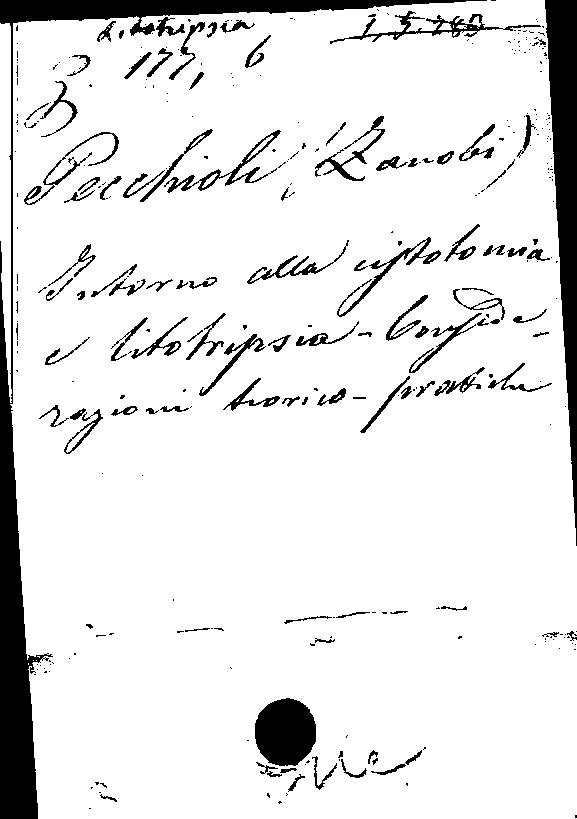 Litotripsia 1.5.283
B. 177, 6
Pecchioli (Zanobi)
Intorno alla cistotomia
e litotripsia - Conside-
razioni teorico-pratiche